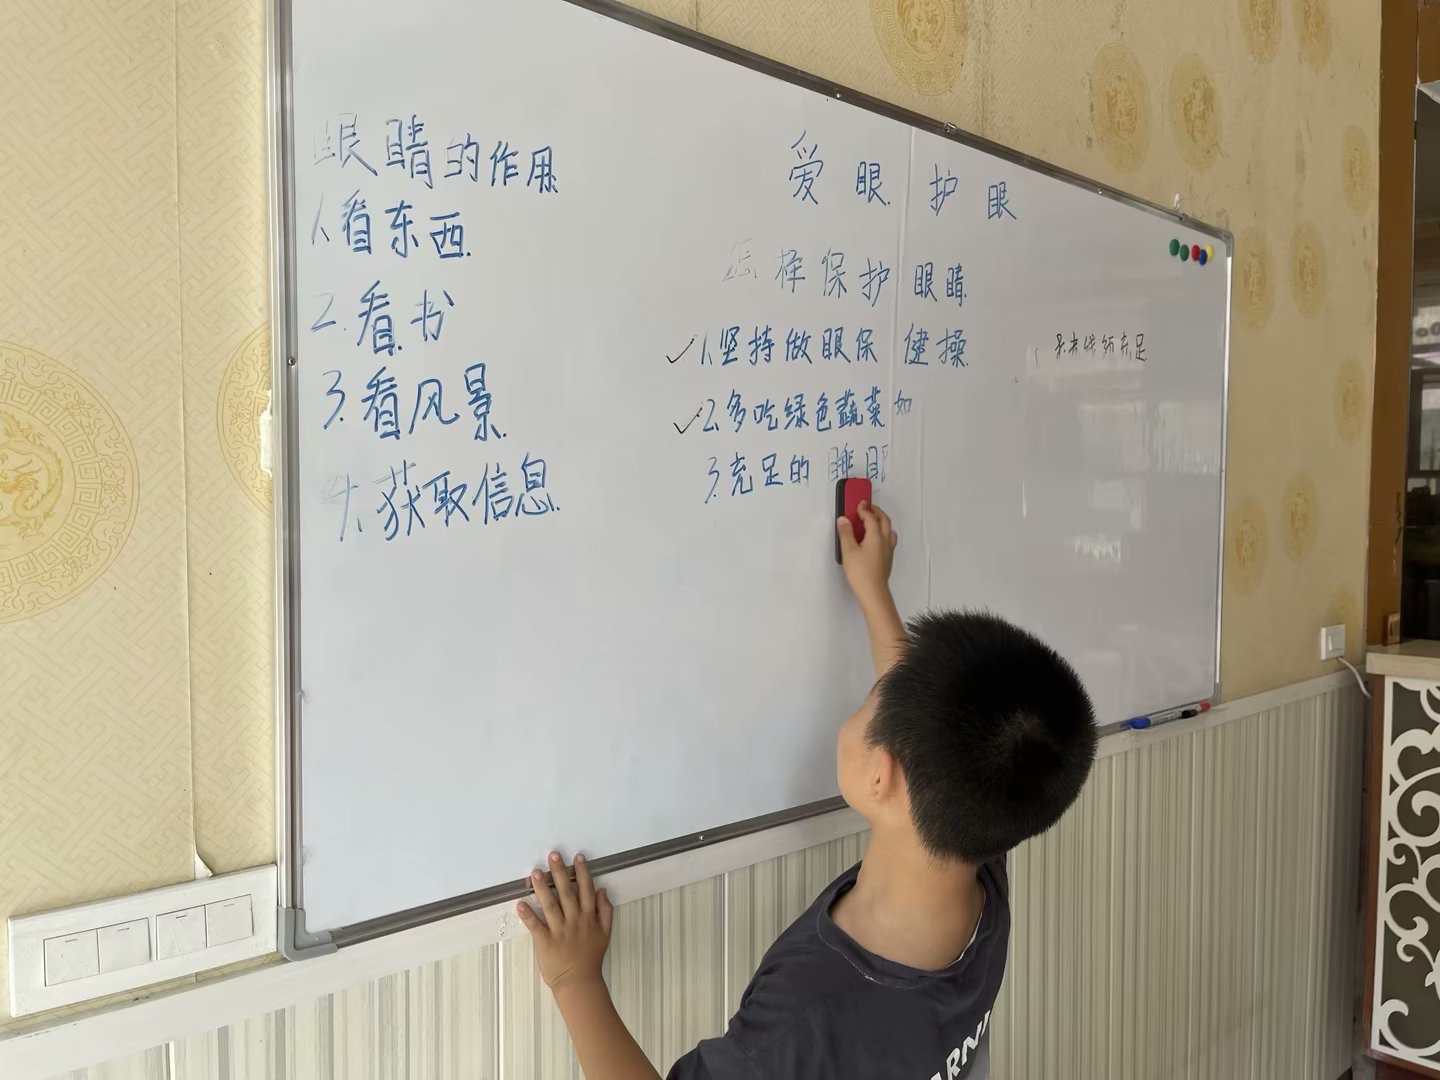 眼睛的作用
1.看东西
2.看书
3.看风景
4.获取信息
爱眼护眼
怎样保护眼睛
✓1.坚持做眼保健操
✓2.多吃绿色蔬菜如
3.充足的睡眠
充足
ARNI